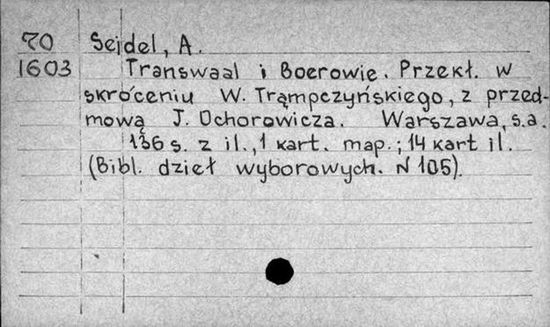 70 Seidel, A.
1603 Transwaal i Boerowie. Przekł. w
skróceniu W. Trąmpczyńskiego, z przed-
mową J. Ochorowicza. Warszawa, s.a.
136 s. z il., 1 kart. map.; 14 kart il.
(Bibl. dzieł wyborowych. N 105).